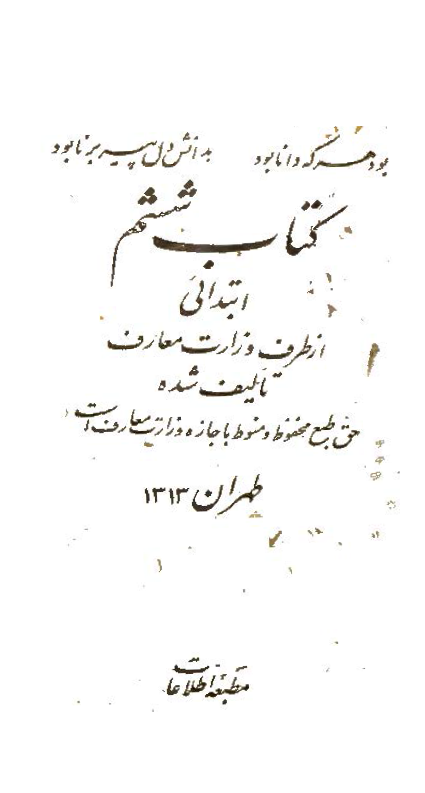 بود هر که دانا بود بدانش دل پیر برنا بود
کتاب ششم
ابتدائی
از طرف وزارت معارف
تألیف شده
حق طبع محفوظ و منوط باجازه وزارت معارف است
طهران ۱۳۱۳
مطبعه اطلاعات